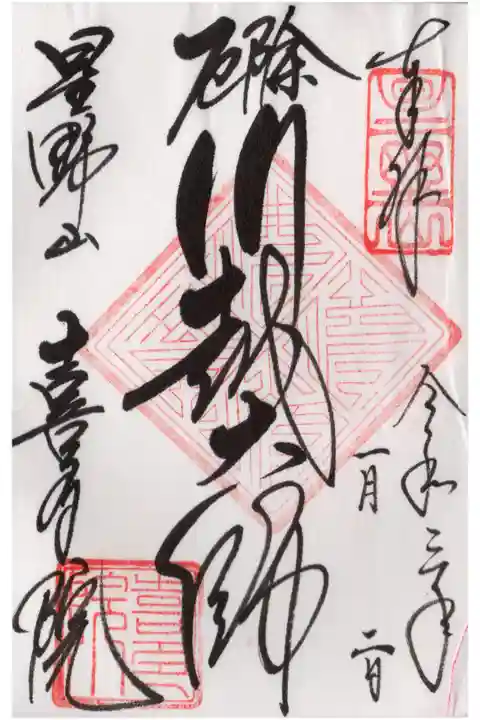 奉拝
令和三年
一月二日
厄除
川越大師
星野山
喜多院